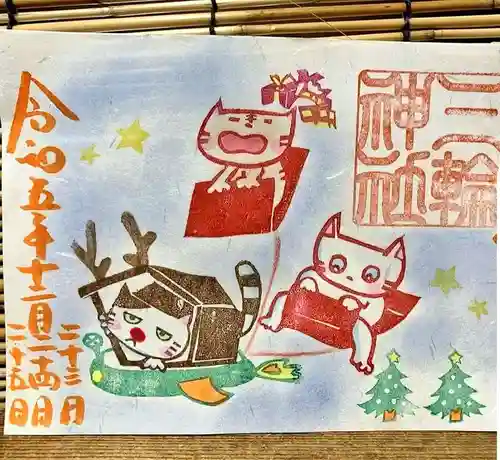 三輪
神社
二十三日
令和五年十二月二十四日
二十五日